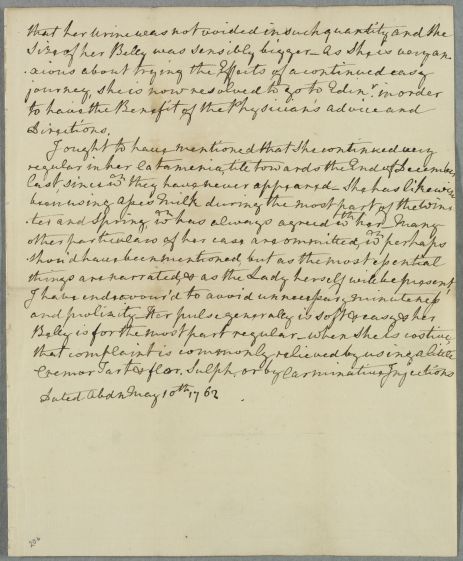 that her Urine was not voided in such quantity and the
Size of her Belly was sensibly bigger – As she is very an-
xious about trying the Effects of a continued easy
journey, she is now resolved to go to Edinr. in order
to have the Benefit of the Physician's advice and
Directions.
I ought to have mentioned that she continued very
regular in her Catamenia, till towards the End of December
last since wch they have never appeared – She has likewise
been using Ases Milk during the most part of the Win-
ter and Spring, wch has always agreed wth her – Many
other particulars of her case are ommitted, wch perhaps
should have been mentioned but as the most essential
things are narrated, & as the Lady herself will be present,
I have endeavour'd to avoid unnecessary minuteness
and prolixity – Her pulse generally is soft & easy & her
Belly is for the most part regular – when she is costive,
that complaint is commonly relieved by using a little
Cremor Tart & flor. Sulph. or by Carminative Injections
Dated Abdn May 10th 1762